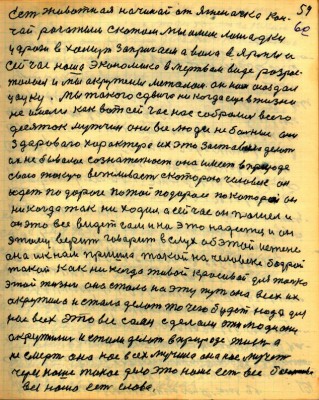 59
60
Сет животная начиная от Ягненачка кон-
чай рогатым скотом мы имим лошадку
удрови в хомут запрягаем а вола в Ярмы а
сей час наша Экономика в мертвом виде
и мы окружены металом он нам создал
науку. Мы такого сдвига никогда еще в жизни
не имели как вот сей час нас собрания всего
десяток мужчин они все люди не больные они
Здорового характера их это заставило делат
ан не бывалое сознателност она имеет в природе
свою такую вежливает скоторою человек он
идет по дороге по той подороге по которой он
никогда так ни ходил а сей час он пошел и
он это все видет сам и на это надеится и он
этому верит говарит вслух об этой истене
она и к нам пришла такой на человеке бодрой
такой как ни когда живой красивой для того
этой жизни она стала на эту пут она всех их
окружила и стала делат то чего будет нада для
нас всех это все сами сделали эти люди они
окружили и стали делат в природе жизн а
не смерт она нас всех мучила она нас мучит
через наше такое дело это наше ест все бессмертие
все наша ест слова.